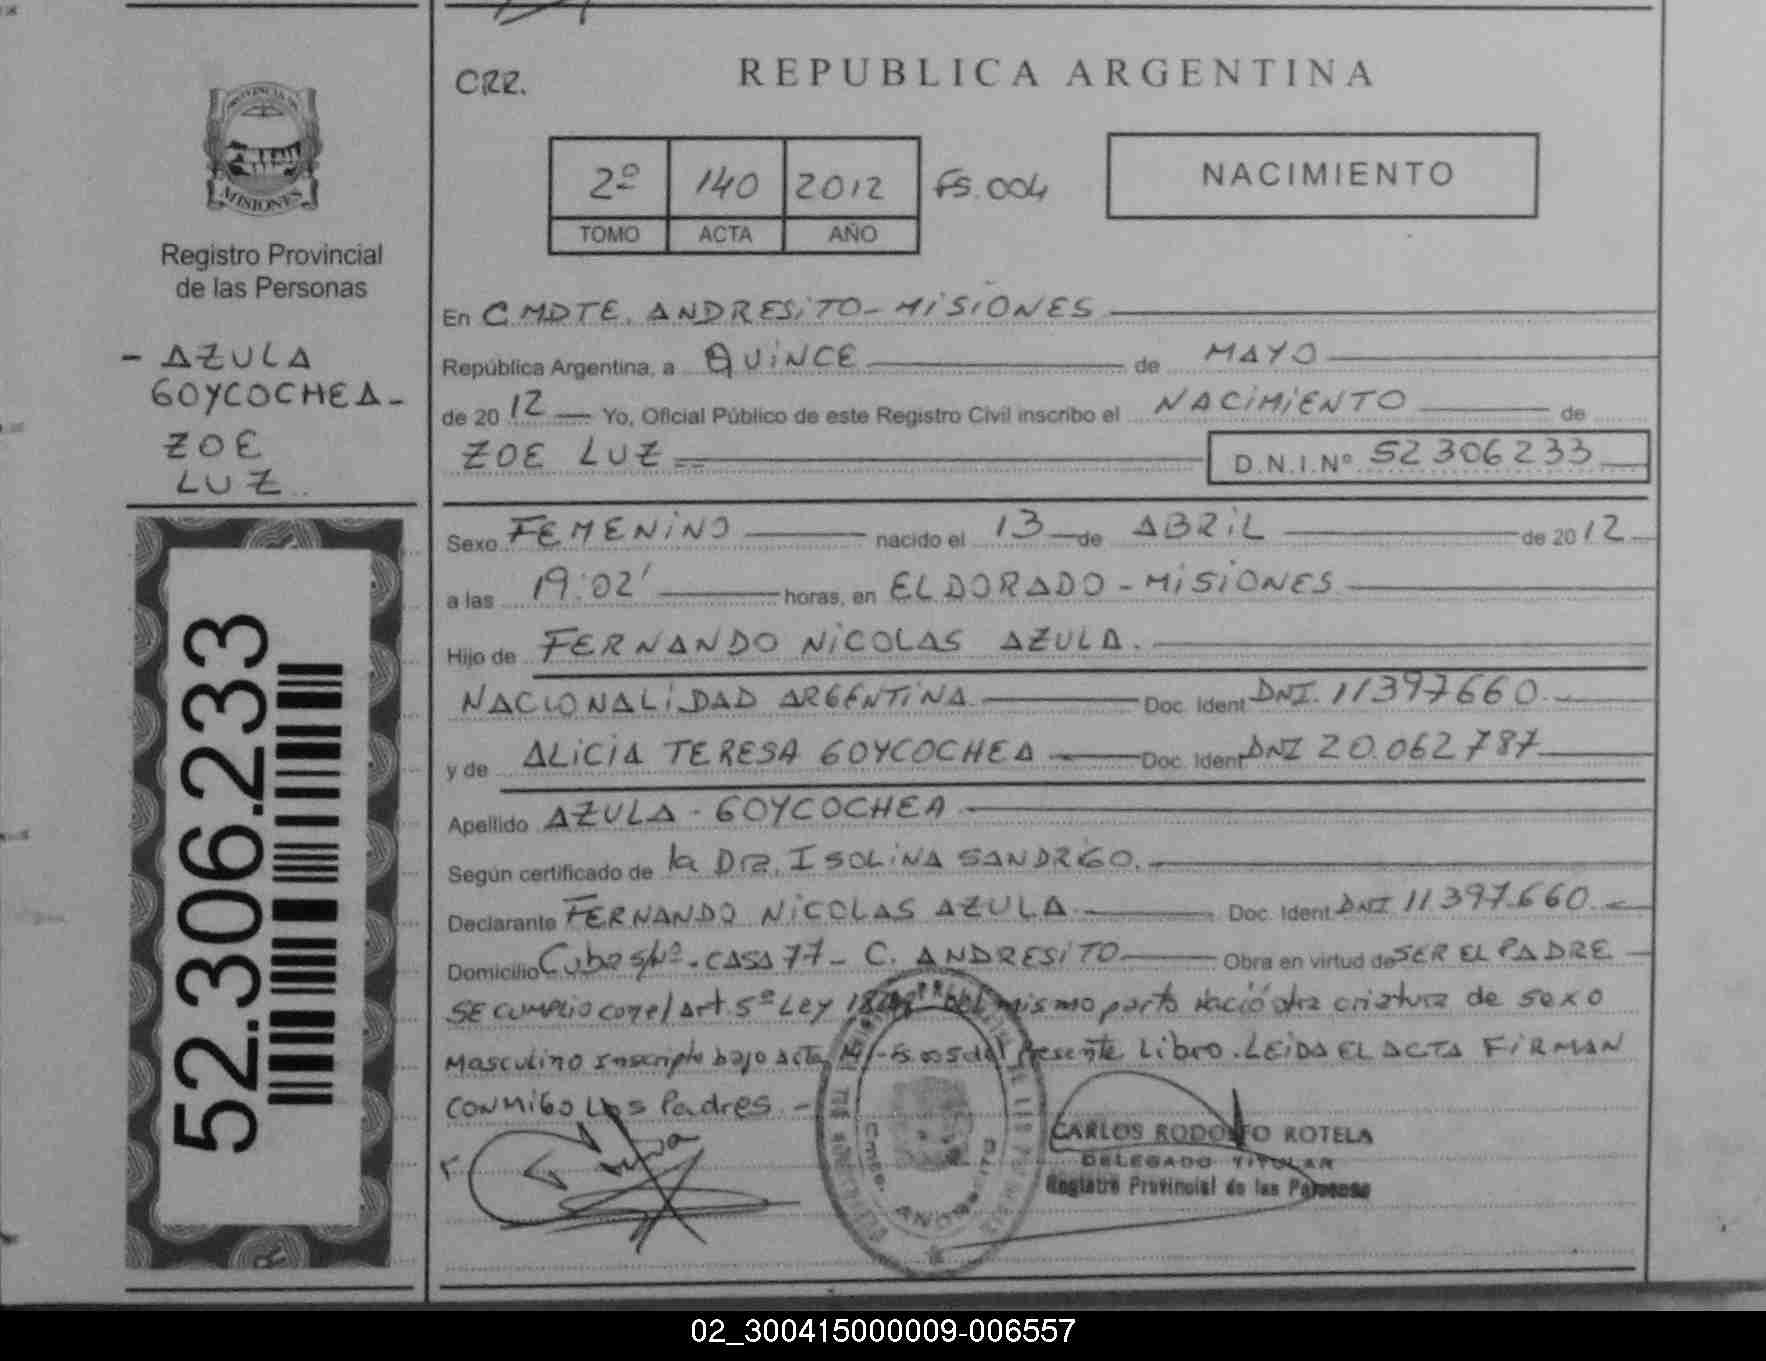 CRR.
REPUBLICA ARGENTINA
PROVINCIA DE
MISIONES
Registro Provincial
de las Personas
2º 140 2012 FS. 004
TOMO ACTA AÑO
NACIMIENTO
- AZULA
GOYCOCHEA -
ZOE
LUZ
52.306.233
En CMDTE. ANDRESiTO - MiSiONES
República Argentina, a QUiNCE de MAYO
de 2012 Yo, Oficial Público de este Registro Civil inscribo el NACiMiENTO de
ZOE LUZ D.N.I.Nº 52306233
Sexo FEMENiNO nacido el 13 de ABRiL de 2012
a las 19:02' horas, en ELDORADO - MiSiONES
Hijo de FERNANDO NiCOLAS AZULA.
NACiONALiDAD ARGENTiNA Doc. Ident DNI. 11397660
y de ALiCiA TERESA GOYCOCHEA Doc. Ident DNI 20.062787
Apellido AZULA - GOYCOCHEA
Según certificado de la DRA. ISOLiNA SANDRiGO.
Declarante FERNANDO NiCOLAS AZULA Doc. Ident DNI 11.397.660
Domicilio Cuba s/Nº - CASA 77 - C. ANDRESiTO Obra en virtud de SER EL PADRE
SE CUMPLIO con el Art. 5º Ley del mismo parto Nació otra criatura de sexo
Masculino Inscripto bajo Acta 141 - FS. 005 del Presente Libro. LEiDA EL ACTA FiRMAN
CONMiGO Los Padres. -
CARLOS RODOLFO ROTELA
DELEGADO TITULAR
Registro Provincial de las Personas
02_300415000009-006557